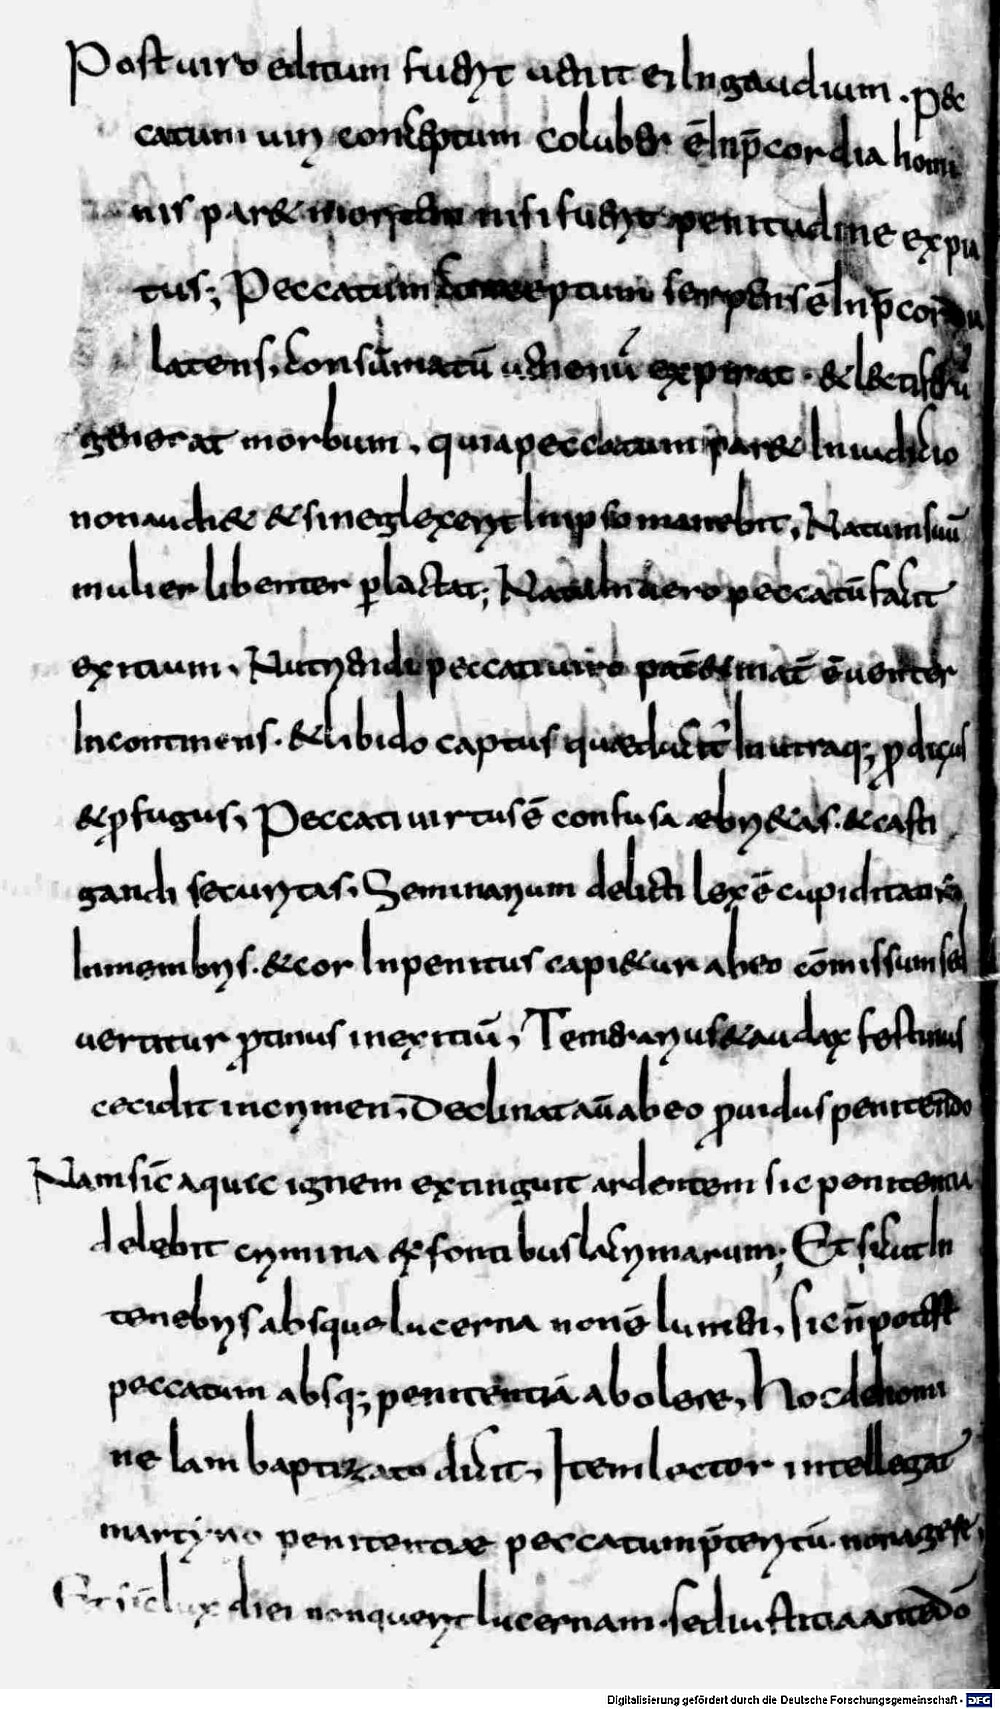 Post uiro editum fuerit uertit ei In gaudium . pec
catum uiri conceptum coluber ē In p̄cordia homi
nis paret mortem nisi fuerit penitudine expia
tus; Peccatum conceptum serpens ē In p̄cordia
latens, consūmatū uenenū expirat . & letiferū
generat morbum , quia peccatum paret In iudicio
non audi& & si neglexerit In ipso manebit , Natum suū
mulier libenter plactat; Natalem uero peccatū facit
exitium , Nutriendi peccati uiro pat̄ & mat̄ ē uenter
Incontinens . & libido captus quae ducit In utraq; p̄
&pfugus , Peccati uirtus ē confusa aebri&as . & casti
gandi securitas , Seminarium delicti lex ē cupiditatis
In membris . & cor Inpenitus capi&ur ab eo cōmissum sed
uertitur ptinus in exitiū , Temerarius & audax festinus
cecidit in crimen, Declinat aū ab eo puidus penitendo
Nam sic̄ aque ignem extinguit ardentem sic penitentia
delebit crymina & fontibus lacrymarum; Et sicut In
tenebris absque lucerna non ē lumen, sic n̄ potest
peccatum absq; penitentia abolere, hoc de homi
ne Iam baptizato dicit , Item lector intellegat
martyrio penitentiae peccatum p̄teritū . non agere ;
Et sic̄ lux diei non querit lucernam . sed iustitia
Digitalisierung gefördert durch die Deutsche Forschungsgemeinschaft - DFG